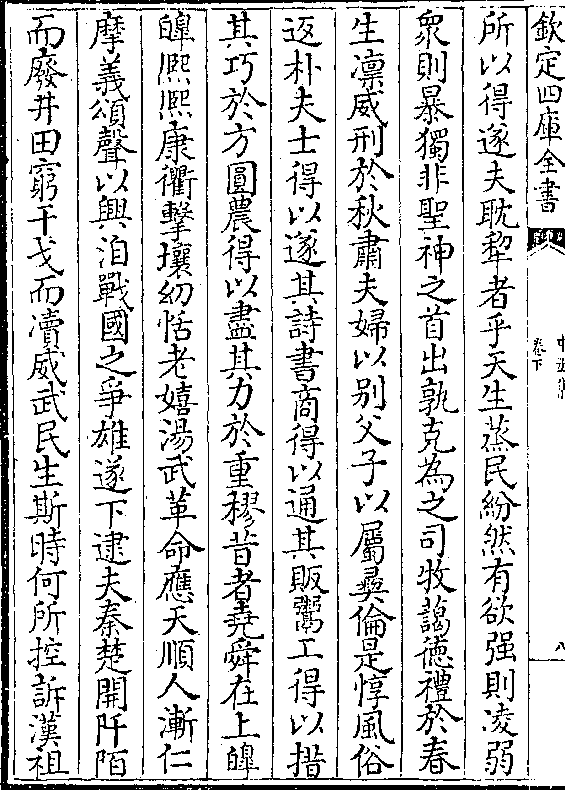 欽定四庫全書
卷下
八
所以得遂夫耽犂者乎天生蒸民紛然有欲强則凌弱
衆則暴獨非聖神之首出孰克為之司牧藹德禮於春
生凛威刑於秋肅夫婦以别父子以屬彛倫是惇風俗
返朴夫士得以遂其詩書商得以通其販鬻工得以措
其巧於方圓農得以盡其力於重穋昔者堯舜在上皥
皥熈熈康衢擊壤幼恬老嬉湯武革命應天順人漸仁
摩義頌聲以興洎戰國之爭雄遂下逮夫秦楚開阡陌
而廢井田窮干戈而凟威武民生斯時何所控訴漢祖